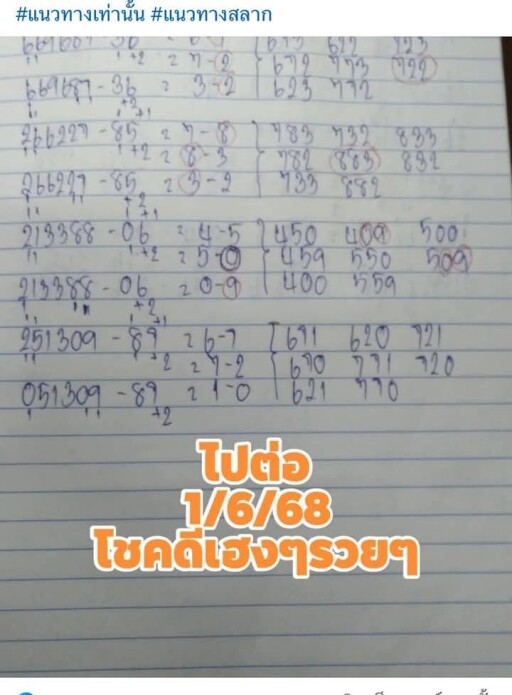 #แนวทางเท่านั้น #แนวทางสลาก
672 773 722
669687 - 36 = 3-2 623 772
266227 - 85 = 7-8 783 732 833
+2 = 8-3 782 883 832
266227 - 85 = 3-2 733 882
+2
213388 - 06 = 4-5 450 409 500
+2 = 5-0 459 550 509
213388 - 06 = 0-9 400 559
+2
251309 - 89 = 6-7 671 620 721
+2 = 7-2 670 771 720
051309 - 89 = 1-0 621 770
+2
ไปต่อ
1/6/68
โชคดีเฮงๆรวยๆ